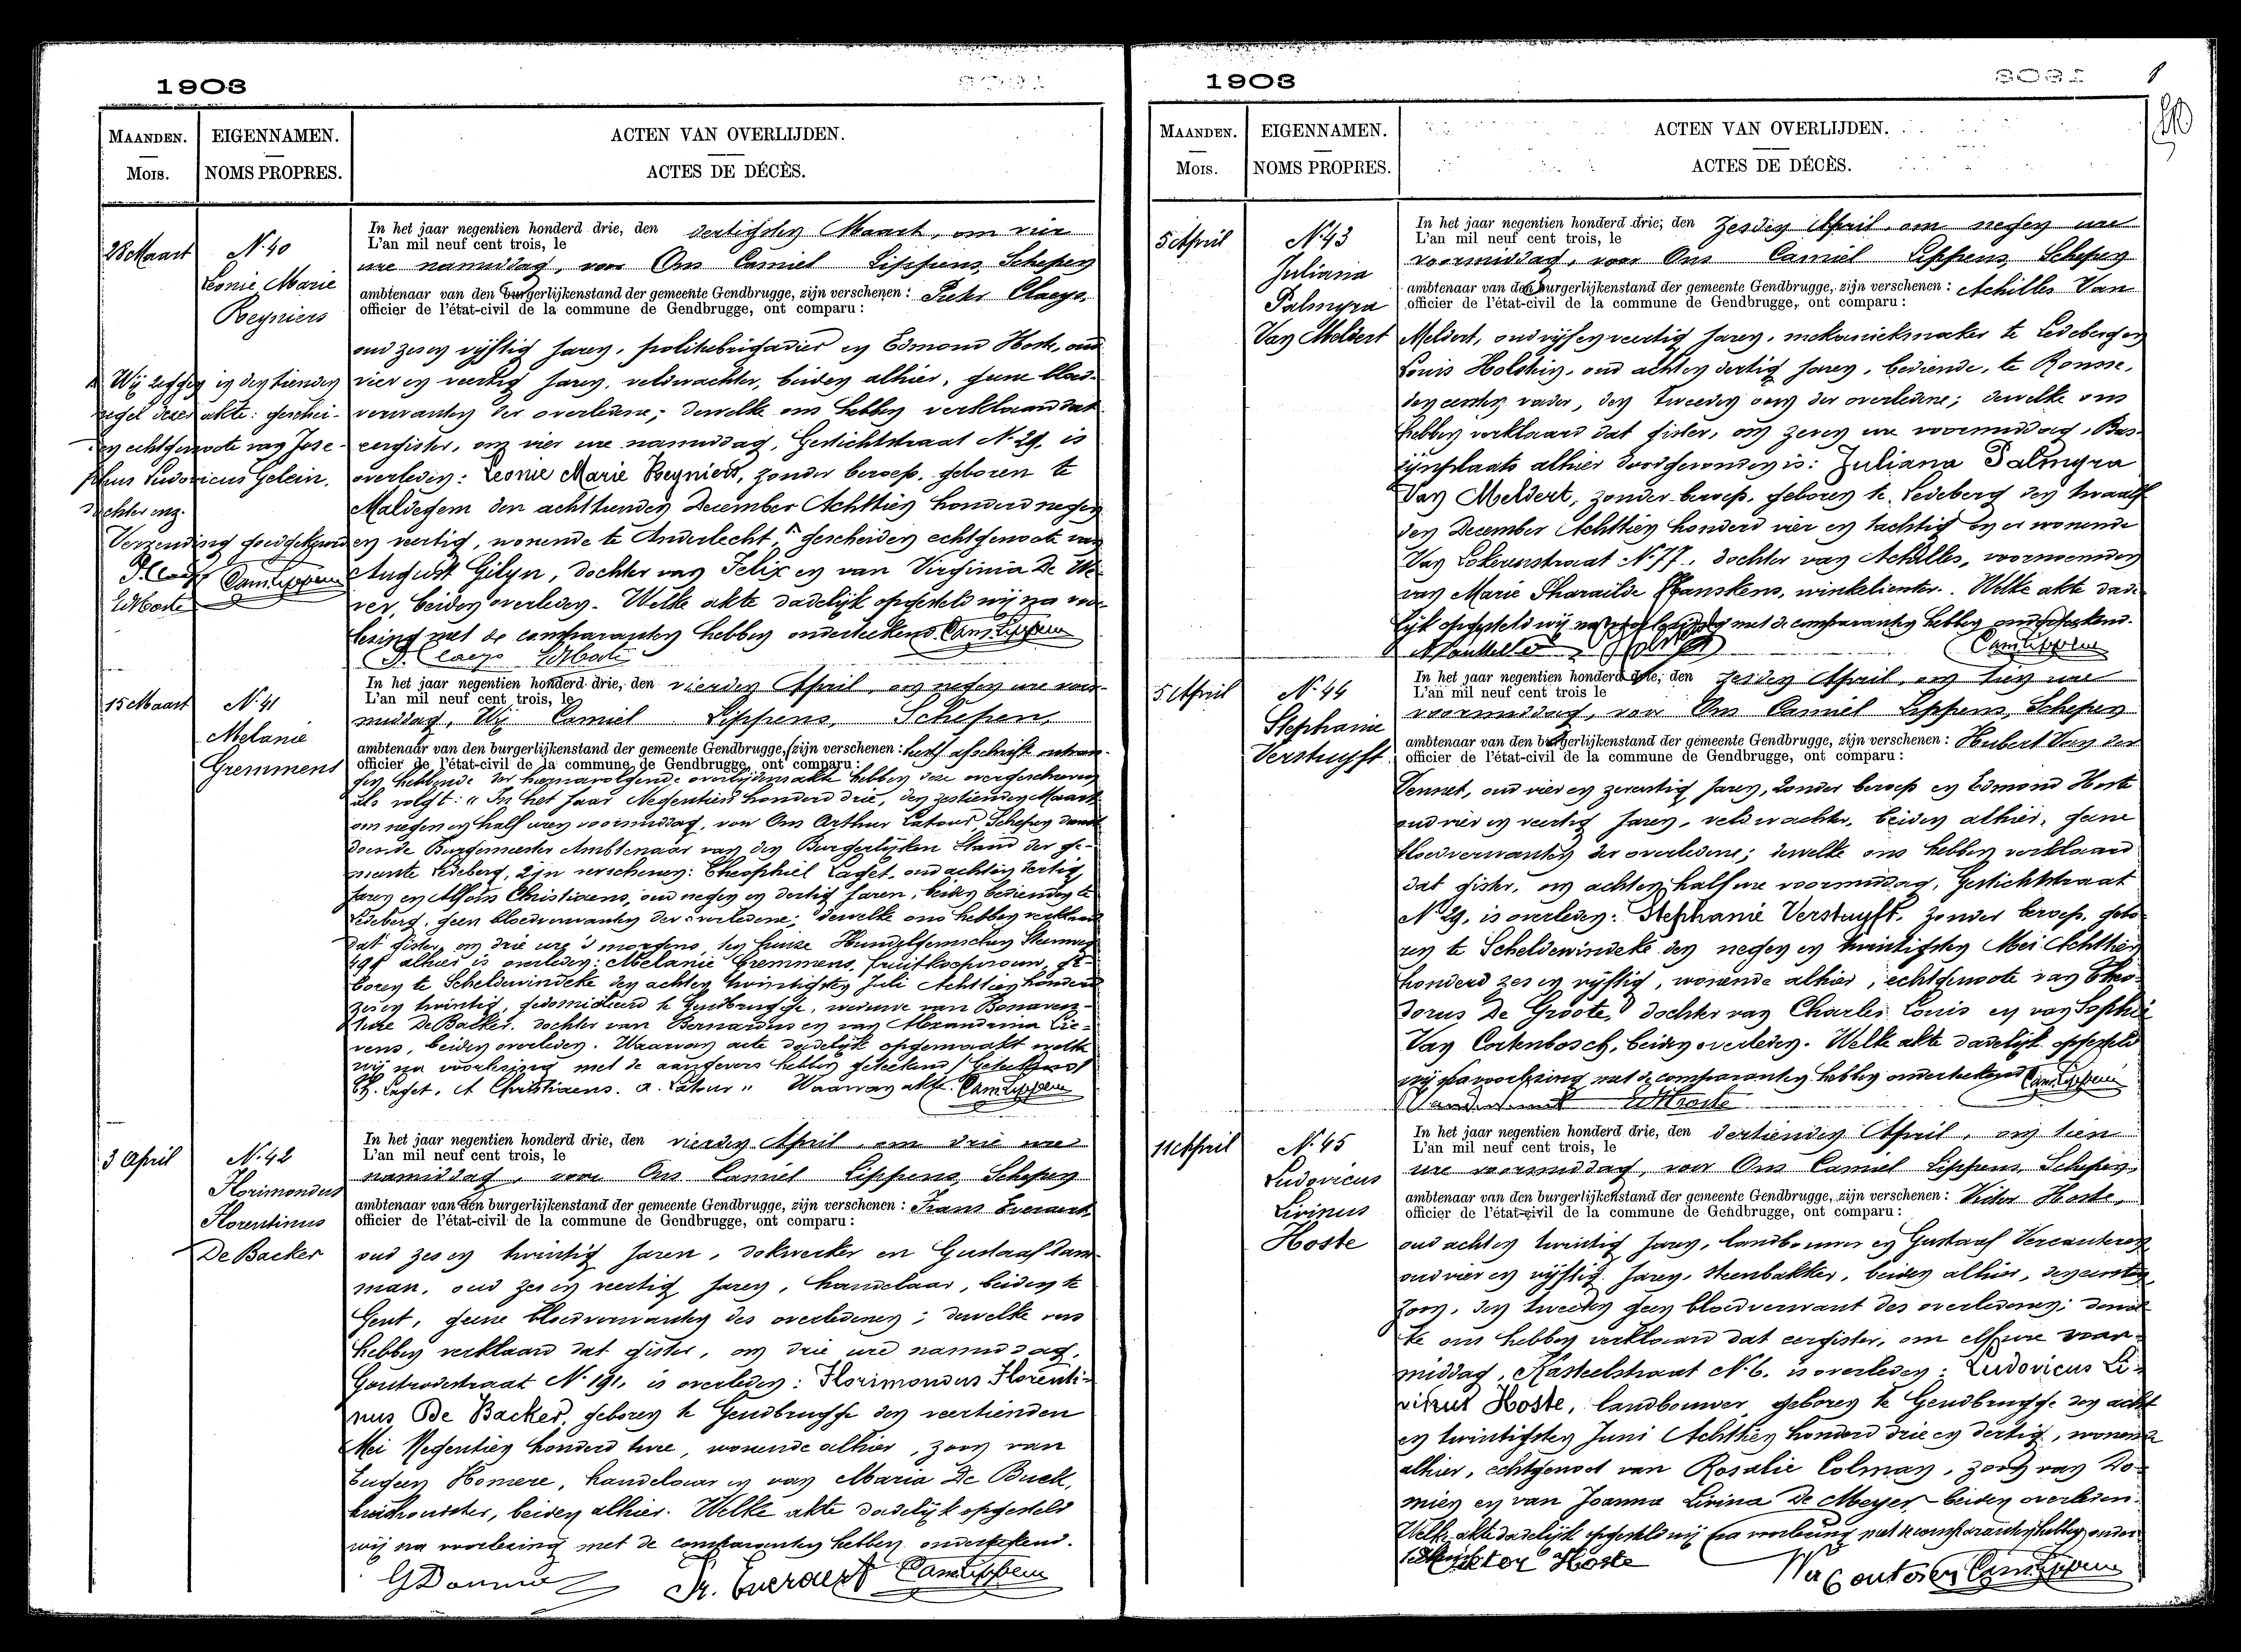 1903
MAANDEN.
Mois.
EIGENNAMEN.
NOMS PROPRES.
ACTEN VAN OVERLIJDEN.
ACTES DE DÉCÈS.
28 Maart
N. 40
Leonie Marie
Reyniers
Wij zeggen in den tienden
regel dezer akte: geschei-
den echtgenoote van Jose-
phus Ludovicus Gelein,
dochter enz.
Verzending goedgekeurd
P. Claeys CamLippens
EdHoste
In het jaar negentien honderd drie, den dertigsten Maart, om vier
L'an mil neuf cent trois, le
ure namiddag, voor Ons Camiel Lippens, Schepen
ambtenaar van den burgerlijkenstand der gemeente Gendbrugge, zijn verschenen: Petrs Claeys,
officier de l'état-civil de la commune de Gendbrugge, ont comparu:
oud zes en vijftig jaren, politiebrigadier en Edmond Hoste, oud
vier en veertig jaren, veldwachter, beiden alhier, geene bloed-
verwanten der overledene; dewelke ons hebben verklaard dat
eergister, om vier ure namiddag, Gestichtstraat N. 29, is
overleden: Leonie Marie Reyniers, zonder beroep, geboren te
Maldegem den achttienden December Achttien honderd negen
en veertig, wonende te Anderlecht, gescheiden echtgenoote van
August Gilyn, dochter van Felix en van Virginia De We-
ver, beiden overleden. Welke akte dadelijk opgesteld wij na voor-
lezing met de comparanten hebben onderteekend. CamLippens
P. Claeys EdHoste
15 Maart
N. 41
Melanie
Gremmens
In het jaar negentien honderd drie, den vierden April, om negen ure voor-
L'an mil neuf cent trois, le
middag, Wij Camiel Lippens, Schepen,
ambtenaar van den burgerlijkenstand der gemeente Gendbrugge, zijn verschenen: het afschrift ontvan-
officier de l'état-civil de la commune de Gendbrugge, ont comparu:
gen hebbende der hiernavolgende overlijdensakte hebben deze overgeschreven
als volgt: "In het jaar Negentien honderd drie, den zestienden Maart
om negen en half uren voormiddag, voor Ons Arthur Latour, Schepen dienst
doende Burgemeester Ambtenaar van den Burgerlijken Stand der ge-
meente Ledeberg, zijn verschenen: Theophiel Laget, oud acht en dertig
jaren en Alfons Christiaens, oud negen en dertig jaren, beiden bedienden te
Ledeberg, geen bloedverwanten der overledene; dewelke ons hebben verklaard
dat gister, om drie ure 's morgens, ten huize Hundelgemschen Steenweg
alhier is overleden: Melanie Gremmens, fruitkoopvrouw, ge-
boren te Scheldewindeke den acht en twintigsten Juli Achttien honderd
zes en twintig, gedomicilieerd te Gendbrugge, weduwe van Bonaven-
ture De Backer, dochter van Bernardus en van Alexandrina Lie-
vens, beiden overleden. Waarvan acte dadelijk opgemaakt welke
wij na voorlezing met de aangevers hebben geteekend / Geteekend
Th. Laget. A Christiaens. A. Latour" Waarvan akte. CamLippens
3 April
N. 42
Florimondus
Florentinus
De Backer
In het jaar negentien honderd drie, den vierden April, om drie ure
L'an mil neuf cent trois, le
namiddag, voor Ons Camiel Lippens, Schepen
ambtenaar van den burgerlijkenstand der gemeente Gendbrugge, zijn verschenen: Frans Everaert,
officier de l'état-civil de la commune de Gendbrugge, ont comparu:
oud zes en twintig jaren, dokwerker en Gustaaf Dam-
man, oud zes en veertig jaren, handelaar, beiden te
Gent, geene bloedverwanten des overledenen; dewelke ons
hebben verklaard dat gister, om drie ure namiddag,
Gontrodestraat N. 191, is overleden: Florimondus Florenti-
nus De Backer, geboren te Gendbrugge den veertienden
Mei Negentien honderd twee, wonende alhier, zoon van
Eugeen Homere, handelaar en van Maria De Buck,
kruidhoudster, beiden alhier. Welke akte dadelijk opgesteld
wij na voorlezing met de comparanten hebben onderteekend.
GDamman Fr. Everaert CamLippens
1903
MAANDEN.
Mois.
EIGENNAMEN.
NOMS PROPRES.
ACTEN VAN OVERLIJDEN.
ACTES DE DÉCÈS.
5 April
N. 43
Juliana
Palmyra
Van Meldert
In het jaar negentien honderd drie, den zesden April, om negen ure
L'an mil neuf cent trois, le
voormiddag, voor Ons Camiel Lippens, Schepen
ambtenaar van den burgerlijkenstand der gemeente Gendbrugge, zijn verschenen: Achilles Van
officier de l'état-civil de la commune de Gendbrugge, ont comparu:
Meldert, oud vijf en veertig jaren, mekaniekmaker te Ledeberg en
Louis Holstein, oud acht en dertig jaren, bediende, te Ronsse,
den eersten vader, den tweeden oom der overledene; dewelke ons
hebben verklaard dat gister, om zeven ure voormiddag, Bas-
sijnplaats alhier doodgevonden is: Juliana Palmyra
Van Meldert, zonder beroep, geboren te Ledeberg den twaalf
den December Achttien honderd vier en tachtig en er wonende
Van Lokerenstraat N. 77, dochter van Achilles, voornoemden
van Marie Pharailde Franskens, winkelierster. Welke akte dade-
lijk opgesteld wij na voorlezing met de comparanten hebben onderteekend.
CamLippens
5 April
N. 44
Stephanie
Verstuyft
In het jaar negentien honderd drie, den zesden April, om tien ure
L'an mil neuf cent trois le
voormiddag, voor Ons Camiel Lippens, Schepen
ambtenaar van den burgerlijkenstand der gemeente Gendbrugge, zijn verschenen: Hubert Van der
officier de l'état-civil de la commune de Gendbrugge, ont comparu:
Vennet, oud vier en zeventig jaren, zonder beroep en Edmond Hoste
oud vier en veertig jaren, veldwachter, beiden alhier, geene
bloedverwanten der overledene; dewelke ons hebben verklaard
dat gister, om acht en half ure voormiddag, Gestichtstraat
N. 29, is overleden: Stephanie Verstuyft, zonder beroep, gebo-
ren te Scheldewindeke den negen en twintigsten Mei Achttien
honderd zes en vijftig, wonende alhier, echtgenoote van Theo-
dorus De Groote, dochter van Charles Louis en van Sophie
Van Cortenbosch, beiden overleden. Welke akte dadelijk opgesteld
wij na voorlezing met de comparanten hebben onderteekend CamLippens
Vandervennet EdHoste
11 April
N. 45
Ludovicus
Livinus
Hoste
In het jaar negentien honderd drie, den dertienden April, om tien
L'an mil neuf cent trois, le
ure voormiddag, voor Ons Camiel Lippens, Schepen,
ambtenaar van den burgerlijkenstand der gemeente Gendbrugge, zijn verschenen: Victor Hoste,
officier de l'état-civil de la commune de Gendbrugge, ont comparu:
oud acht en twintig jaren, landbouwer en Gustaaf Vercauteren
oud vier en vijftig jaren, steenbakker, beiden alhier, den eersten
zoon, den tweeden geen bloedverwant des overledenen; dewel-
ke ons hebben verklaard dat eergister, om elf ure voor-
middag, Kasteelstraat N. 6, is overleden: Ludovicus Li-
vinus Hoste, landbouwer, geboren te Gendbrugge den acht
en twintigsten Juni Achttien honderd drie en dertig, wonende
alhier, echtgenoot van Rosalie Colman, zoon van Do-
mien en van Joanna Livina De Meyer beiden overleden.
Welke akte dadelijk opgesteld wij na voorlezing met de comparanten hebben onder
teekend Victor Hoste Vercauteren CamLippens